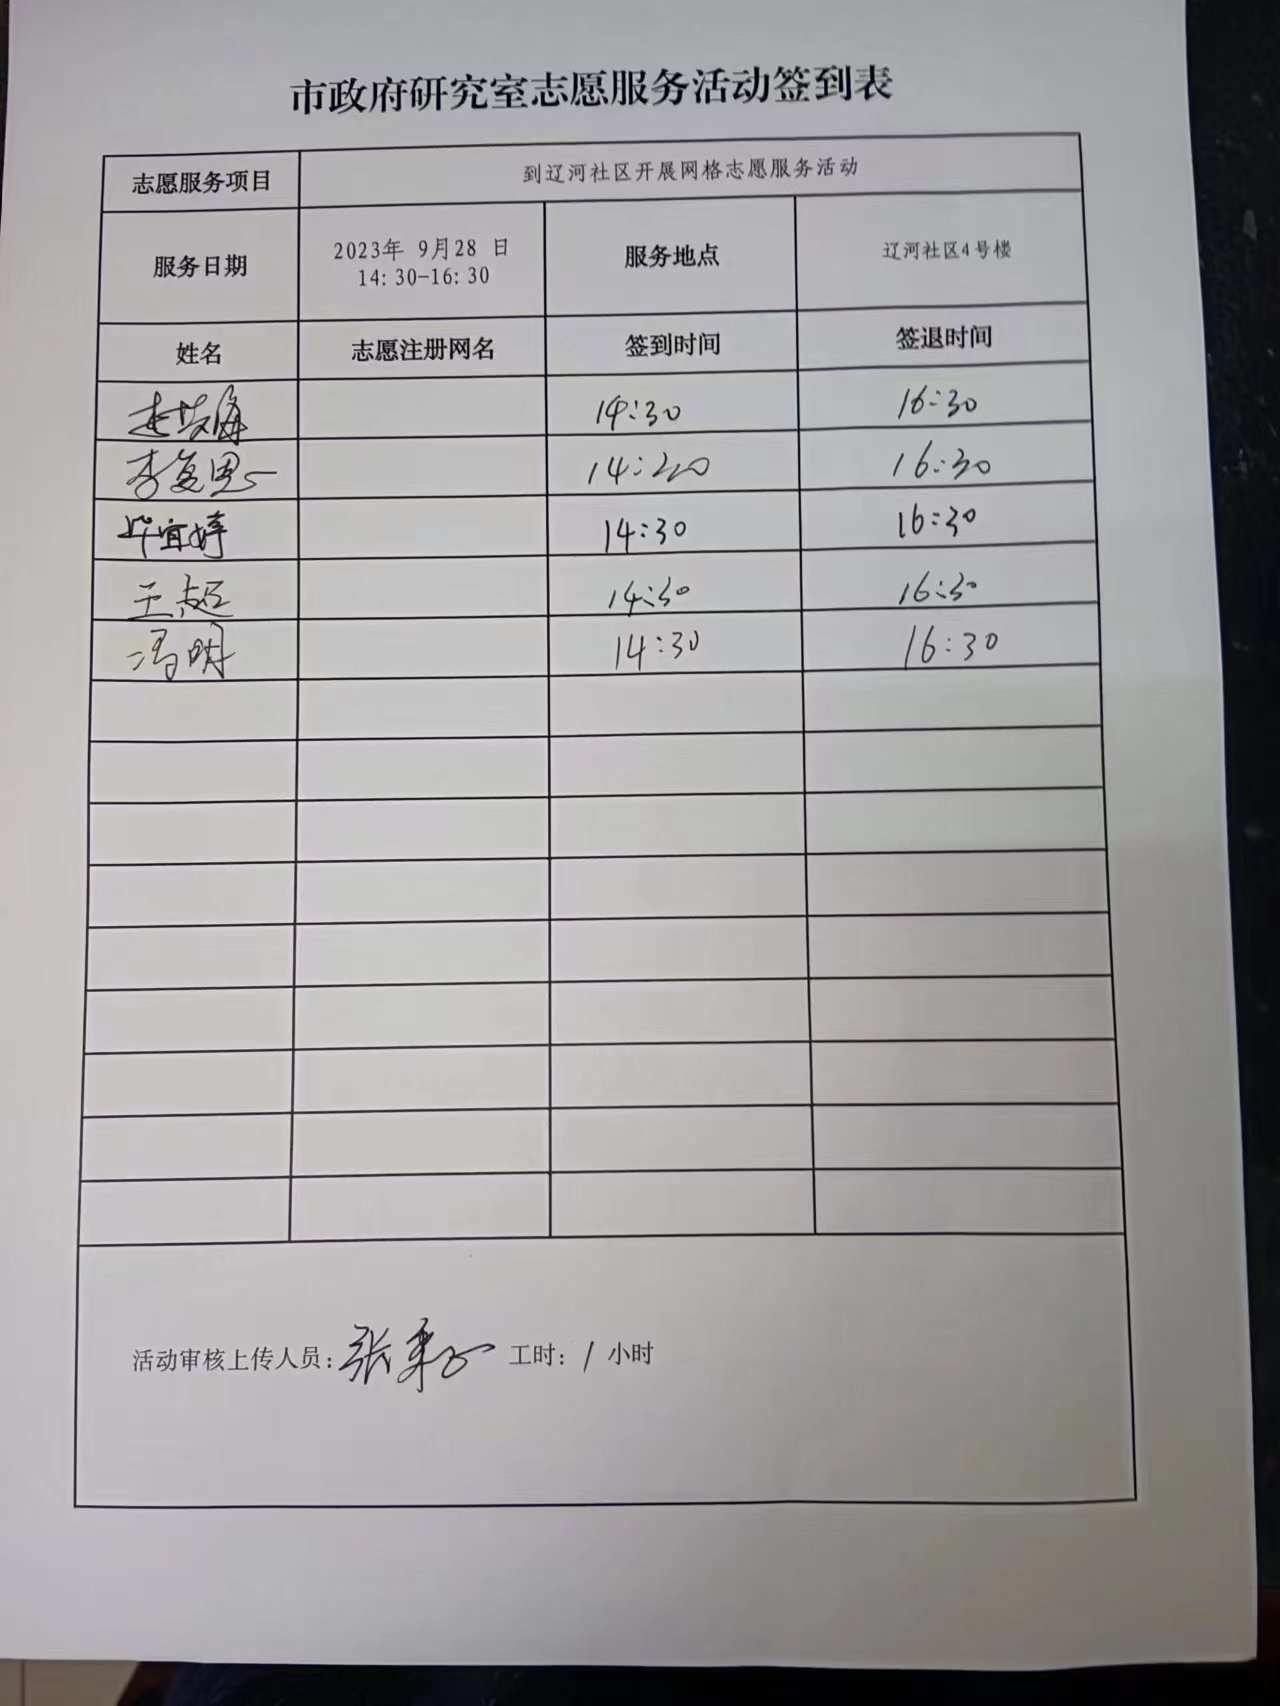 市政府研究室志愿服务活动签到表
志愿服务项目 到辽河社区开展网格志愿服务活动
服务日期 2023年 9月28 日 14:30-16:30 服务地点 辽河社区4号楼
姓名 志愿注册网名 签到时间 签退时间
14:30 16:30
李复思 16:30
毕宜婷 14:30 16:30
王超 14:30 16:30
冯明 14:30 16:30
活动审核上传人员: 张 工时: 1 小时